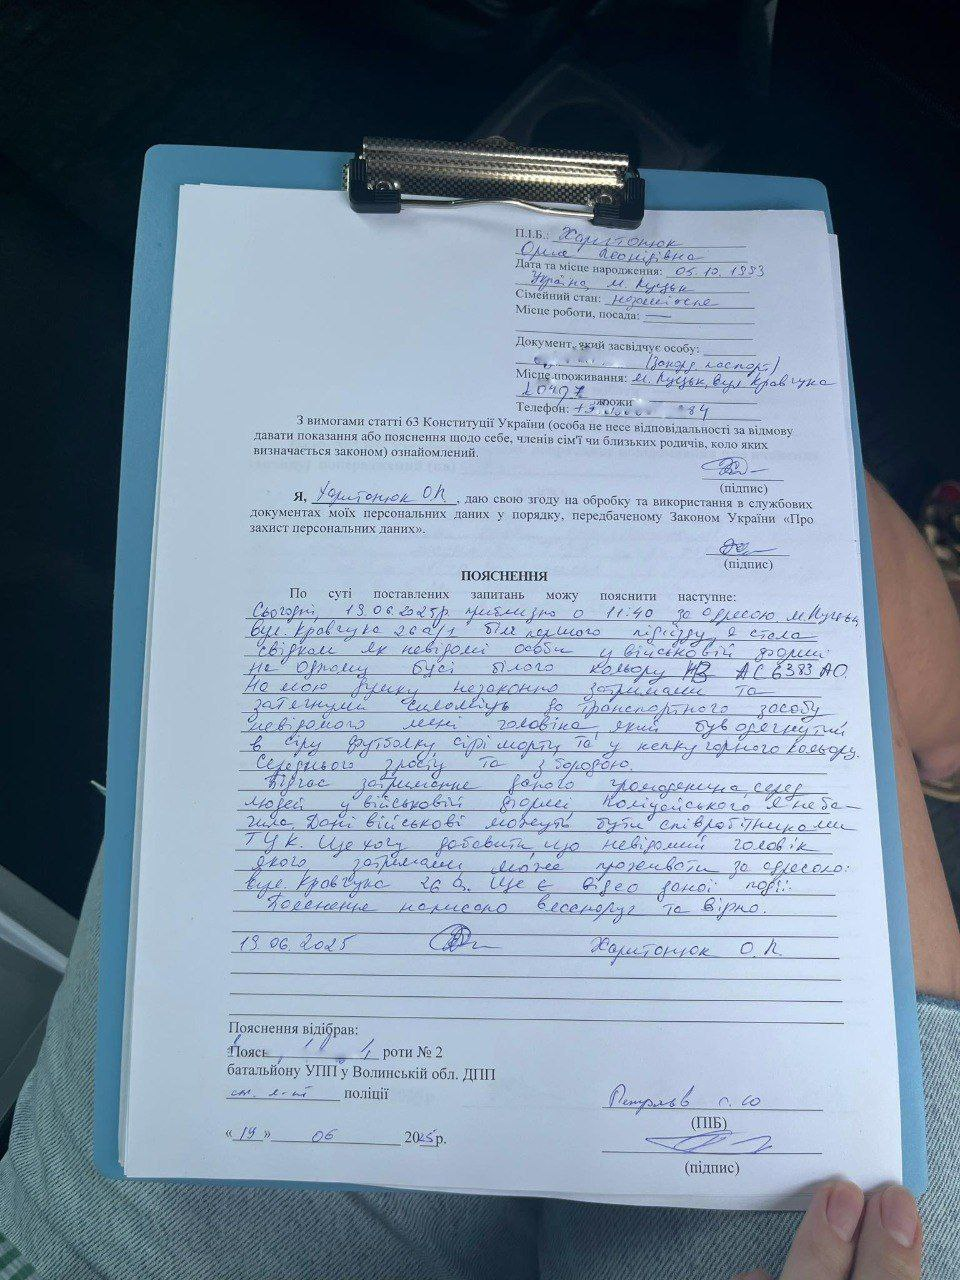 П.І.Б.: Харитонюк
Орися Леонідівна
Дата та місце народження: 05.10.1993
Україна, м. Луцьк
Сімейний стан: незаміжня
Місце роботи, посада: —
Документ, який засвідчує особу:
(закорд. паспорт)
Місце проживання: м. Луцьк, вул Кравчука
Телефон:
З вимогами статті 63 Конституції України (особа не несе відповідальності за відмову
давати показання або пояснення щодо себе, членів сім'ї чи близьких родичів, коло яких
визначається законом) ознайомлений.
(підпис)
Я, Харитонюк О.Л, даю свою згоду на обробку та використання в службових
документах моїх персональних даних у порядку, передбаченому Законом України «Про
захист персональних даних».
(підпис)
ПОЯСНЕННЯ
По суті поставлених запитань можу пояснити наступне:
Сьогодні, 19.06.2025р. приблизно о 11:40 за адресою м. Луцьк,
вул. Кравчука 26 біля першого під'їзду, я стала
свідком як невідомі особи у військовій формі
на одному бусі білого кольору НЗ АС6383АО.
На мою думку незаконно затримали та
затягнули силоміць до транспортного засобу
невідомого мені чоловіка, який був одягнутий
в сіру футболку, сірі шорти та у кепку чорного кольору.
Середнього зросту та з бородою.
Підчас затримання даного громадянина, серед
людей у військовій формі поліцейського я не ба-
чила. Дані військові можуть бути співробітниками
ТЦК. Ще хочу добавити що невідомий чоловік
якого затримали може проживати за адресою:
вул. Кравчука 26 а. Ще є відео даної події.
Пояснення написано власноруч та вірно.
19.06.2025 Харитонюк О.Л.
Пояснення відібрав:
роти № 2
батальйону УПП у Волинській обл. ДПП
поліції
(ПІБ)
«19» 06 2025р.
(підпис)